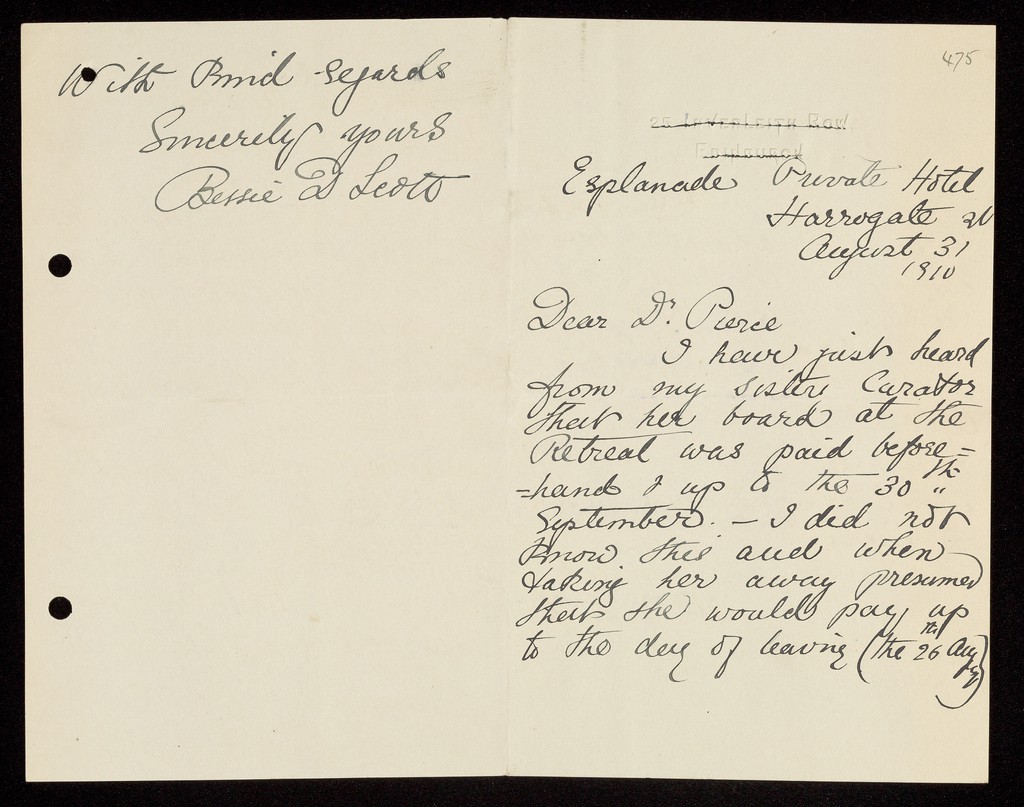 475
Esplanade Private Hotel
Harrogate
August 31
1910
Dear Dr. Pierce
I have just heard
from my sisters Curator
that her board at the
Retreat was paid before=
=hand & up to the 30th
September. — I did not
know this and when
taking her away presumed
that she would pay up
to the day of leaving (the 26th Aug)
With kind regards
Sincerely yours
Bessie D Scott